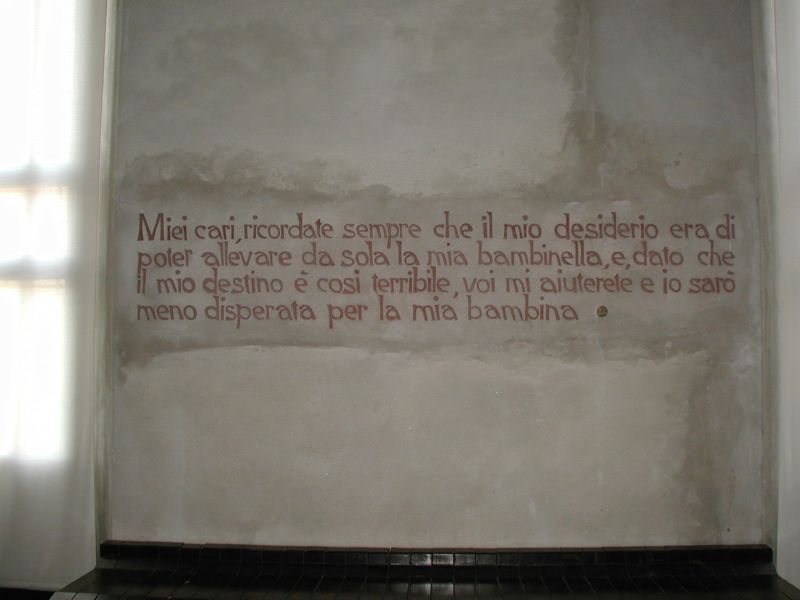 Miei cari, ricordate sempre che il mio desiderio era di
poter allevare da sola la mia bambinella, e, dato che
il mio destino è così terribile, voi mi aiuterete e io sarò
meno disperata per la mia bambina